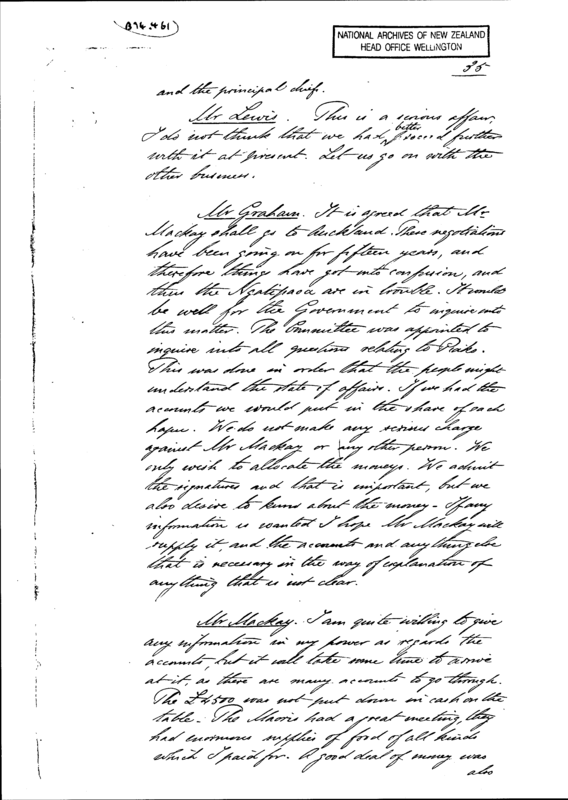 (B74.461)
NATIONAL ARCHIVES OF NEW ZEALAND
HEAD OFFICE WELLINGTON
35
and the principal chiefs.
Mr Lewis. This is a serious affair,
I do not think that we had better proceed further
with it at present. Let us go on with the
other business.
Mr Graham. It is agreed that Mr
Mackay shall go to Auckland. These negotiations
have been going on for fifteen years, and
therefore things have got into confusion, and
thus the Ngatipaoa are in trouble. It would
be well for the Government to inquire into
this matter. The Committee was appointed to
inquire into all questions relating to Piako.
This was done in order that the people might
understand the state of affairs. If we had the
accounts we would put in the share of each
hapu. We do not make any serious charge
against Mr Mackay or any other person. We
only wish to allocate the moneys. We admit
the signatures and that is important, but we
also desire to know about the money - If any
information is wanted I hope Mr Mackay will
supply it, and the accounts and anything else
that is necessary in the way of explanation of
anything that is not clear.
Mr Mackay. I am quite willing to give
any information in my power as regards the
accounts, but it will take some time to arrive
at it, as there are many accounts to go through.
The £4500 was not put down in cash on the
table - The Maoris had a great meeting, they
had enormous supplies of food of all kinds
which I paid for. A good deal of money was
also